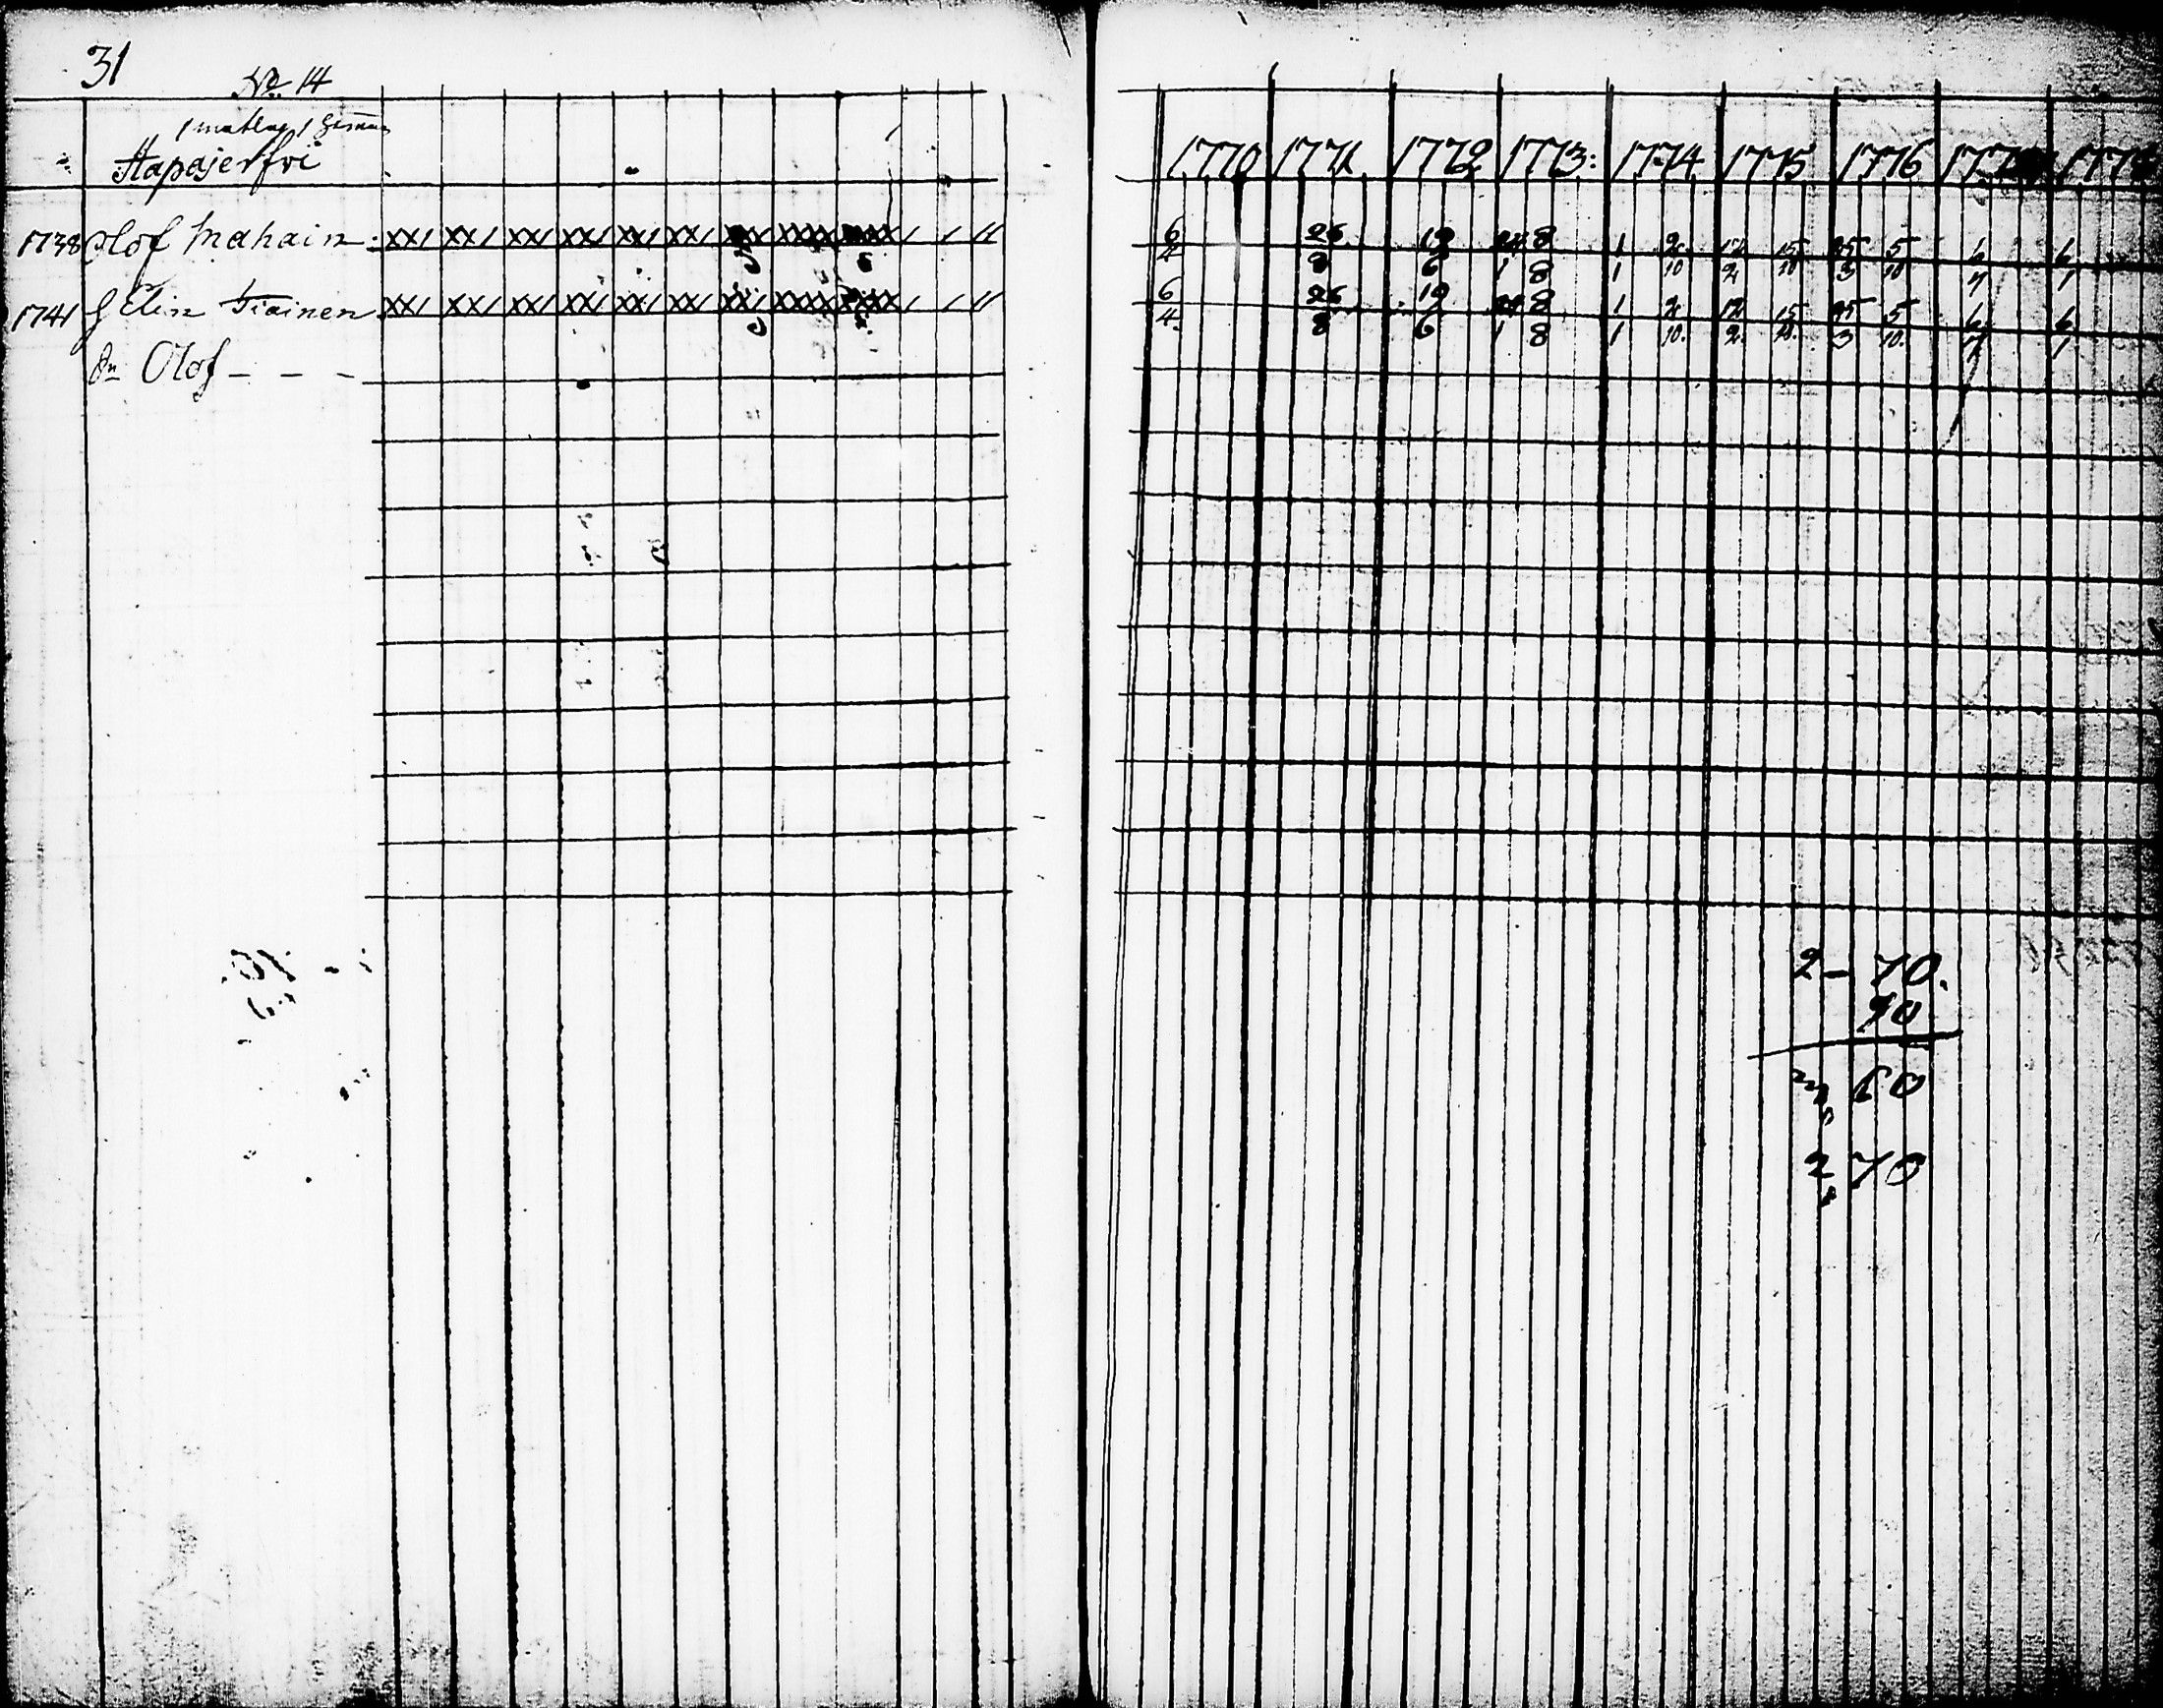 31
No 14
1 matlag 1
Hapajerfvi
1770 1771 1772 1773: 1774 1775 1776 1777 1778
1738 Olof Mahain xx/ xx/ xx/ xx/ xx/ xx/
6 26 19 24 8 1 2 12 15 25 5 6 6
4 8 6 1 8 1 10 2 10 3 10 7 1
1741 H Elin Tiainen xx/ xx/ xx/ xx/ xx/ xx/ xx/ xxxx
6 26 19 24 8 1 2 12 15 25 5 6 6
4. 8 6 1 8 1 10. 2. 10. 3 10. 7 1
Sn Olof - - -
2 - 70.
90
60
2 70